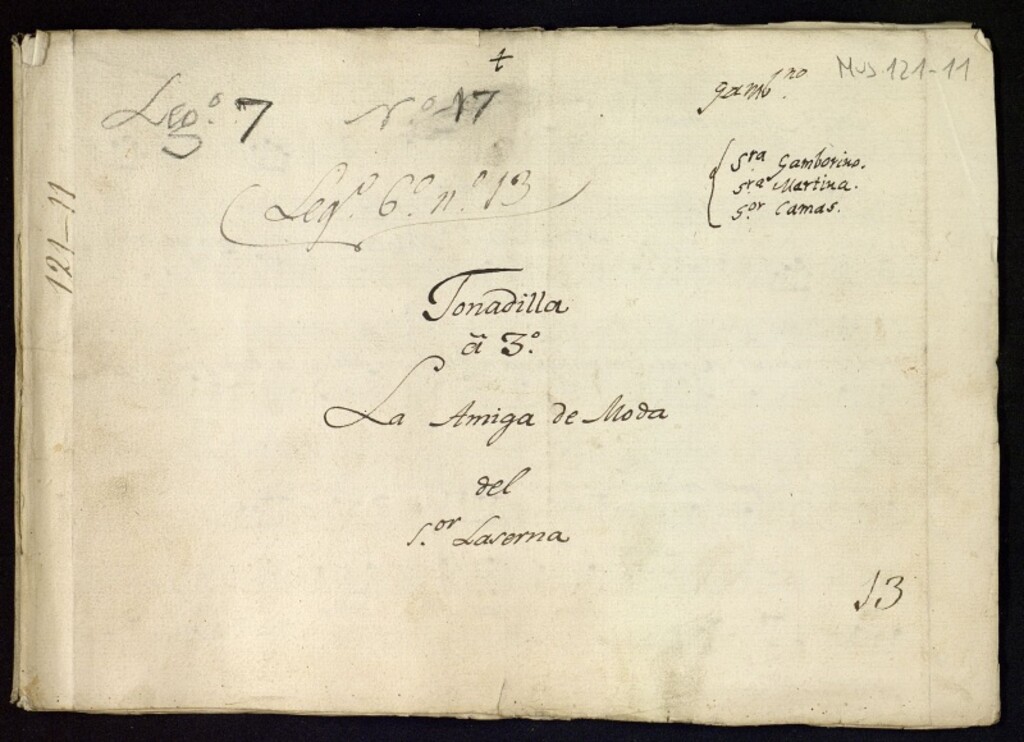 +
Mus 121-11
Leg.º 7 N.º 17
Gamb.no
Leg.º 6.º n.º 13
S.ra Gamborino.
S.ra Martina.
S.or Camas.
121-11
Tonadilla
â 3.º
La Amiga de Moda
del
S.or Laserna
13